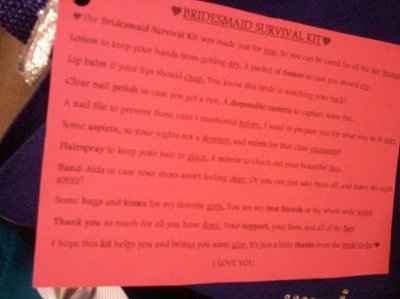 ♥BRIDESMAID SURVIVAL KIT♥
♥The Bridesmaid Survival Kit was made just for you. So you can be cared for all the day
Lotion to keep your hands from getting dry. A packet of tissues in case you should cry.
Lip balm if your lips should chap. You know this bride is watching your back!
Clear nail polish in case you get a run. A disposable camera to capture some fun.
A nail file to prevent those cuts I mentioned before. I want to prepare you for what may be in store.
Some aspirin, so your nights not a and mints for that close
Hairspray to keep your hair in place. A mirror to check out your beautiful face.
Band-Aids in case your shoes aren't feeling Or you can just take them off, and dance the night away!
Some hugs and kisses for my favorite girls. You are my best friends in the whole wide world
Thank you so much for all you have done. Your support, your love, and all of the fun!
I hope this kit helps you and brings you some It's just a little thanks from the bride to be♥
I LOVE YOU